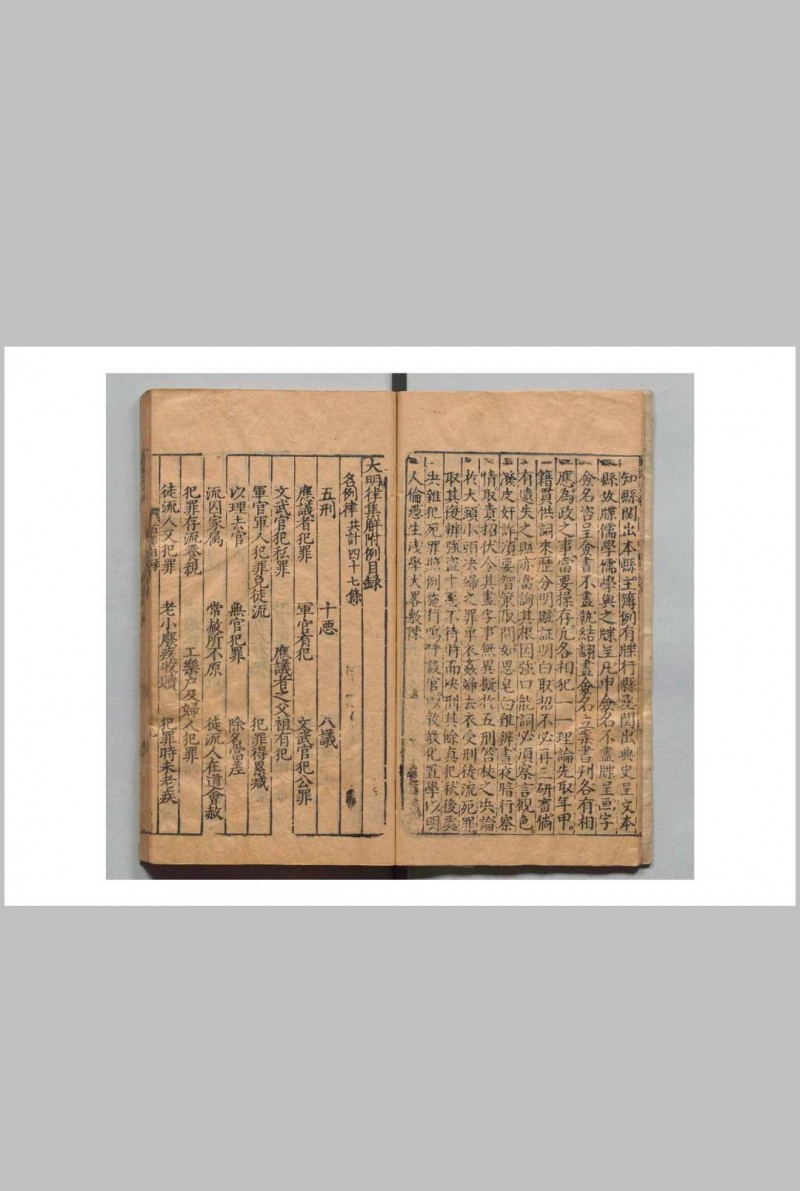 知縣閣出本縣主簿例有牒行縣丞閣出典史呈文本
縣故牒儒學儒學與之牒呈凡申僉名不盡牒呈画字
僉名咨呈僉書不盡執結翻盡僉名立案書判各有相
應為政之事當要操存凢各相犯一一理論先取年甲
籍貫供詞來歷分明賍証明白取招不必再三研審倘
有遺失之賍亦當詢其根因強口能詞必須察言觀色
潑皮奸詐須要智策取問如思皂白难辨晝夜暗行察
情取責招伏令其畫字事無異擬於五刑笞杖之决論
於大頭小頭决婦之罪单衣姦婦去衣受刑徒流死罪
取其後辨強盗十惡不待時而决刑其餘真犯秋後奏
决雜犯死罪照例施行嗚呼設官以敎敎化置學以明
人倫愚生浅學大畧敷陳
大明律集解附例目録
名例律 共計四十七條
五刑 十惡 八議
應議者犯罪 軍官有犯 文武官犯公罪
文武官犯私罪 應議者之父祖有犯
軍官軍人犯罪免徒流 犯罪得累减
以理去官 無官犯罪 除名當差
流囚家属 常赦所不原 徒流人在道會赦
犯罪存流養親 工樂户及婦人犯罪
徒流人又犯罪 老小廢疾收贖 犯罪時未老疾